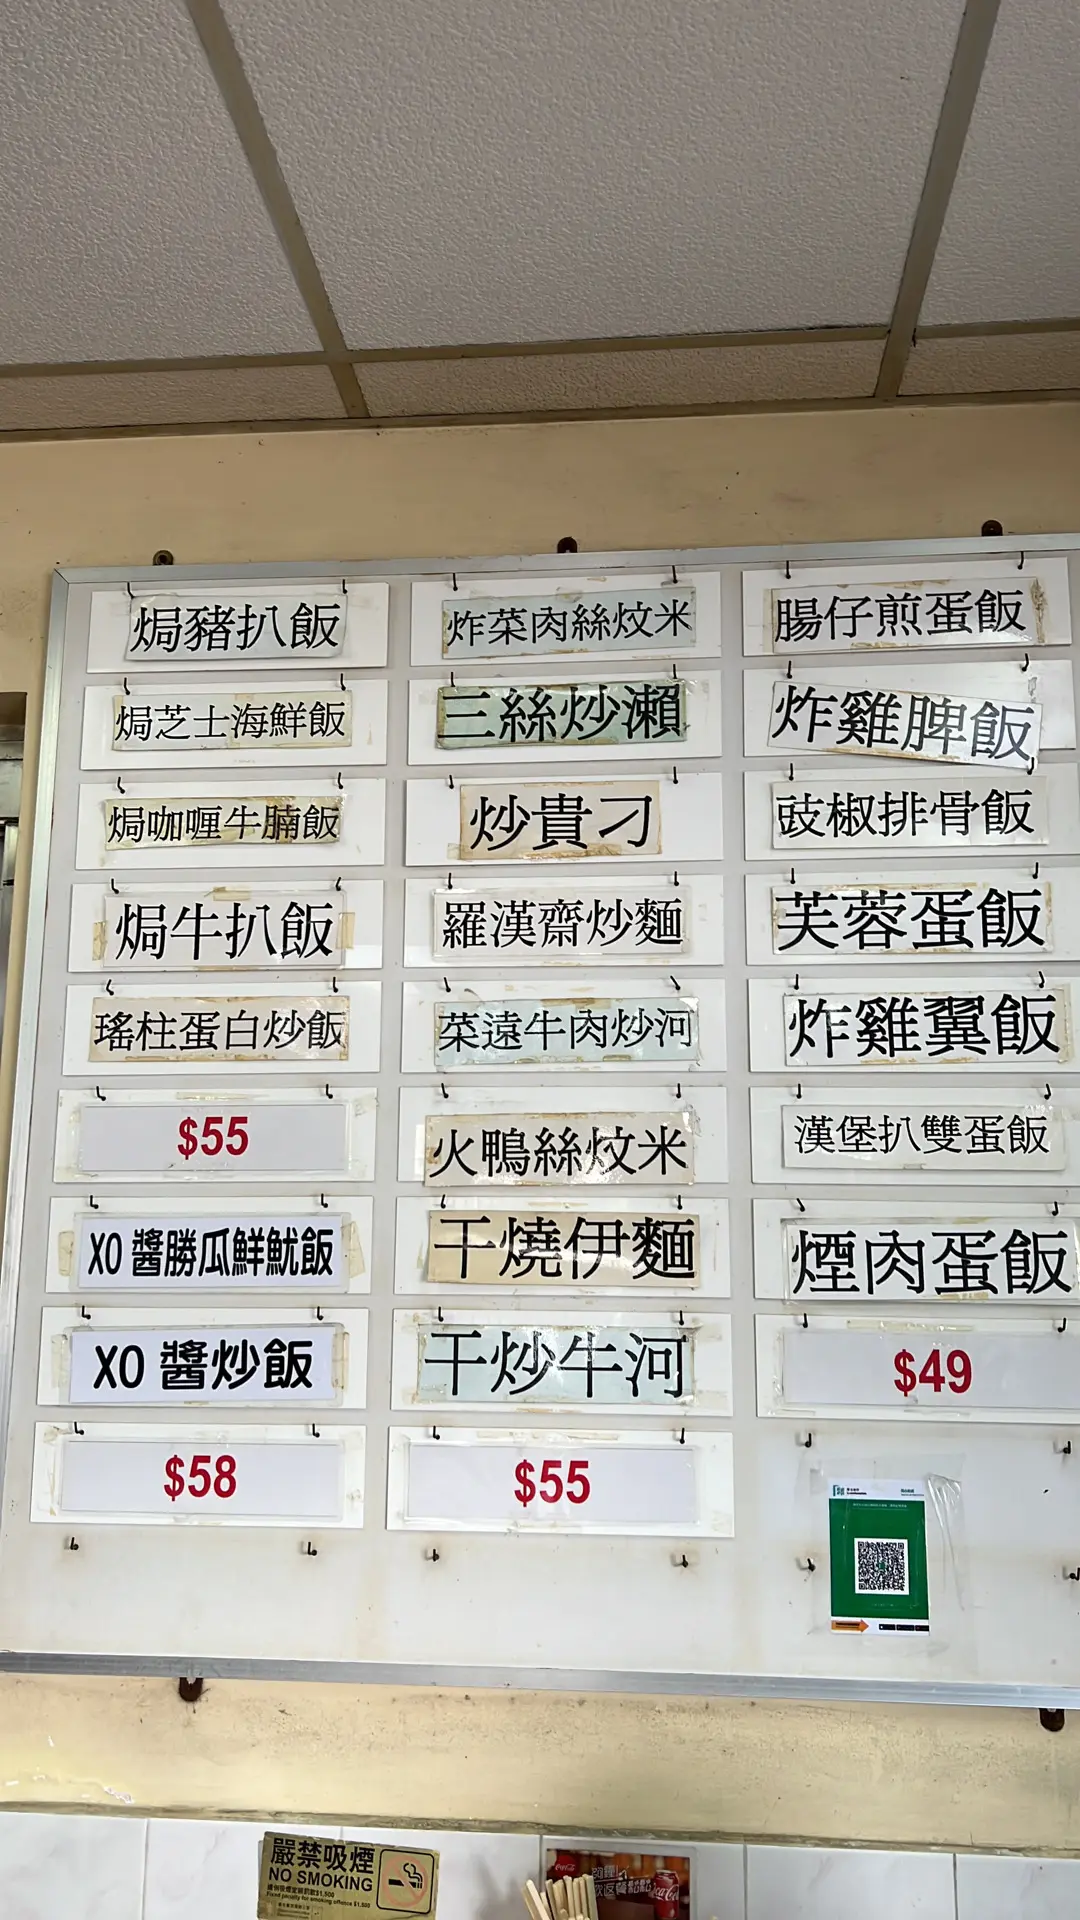 焗豬扒飯
焗芝士海鮮飯
焗咖喱牛腩飯
焗牛扒飯
瑤柱蛋白炒飯
$55
XO 醬勝瓜鮮魷飯
XO 醬炒飯
$58
炸菜肉絲炆米
三絲炒瀨
炒貴刁
羅漢齋炒麵
菜遠牛肉炒河
火鴨絲炆米
干燒伊麵
干炒牛河
$55
腸仔煎蛋飯
炸雞脾飯
豉椒排骨飯
芙蓉蛋飯
炸雞翼飯
漢堡扒雙蛋飯
煙肉蛋飯
$49
嚴禁吸煙
NO SMOKING
違例吸煙定額罰款$1,500
Fixed penalty for smoking offence $1,500
Coca-Cola